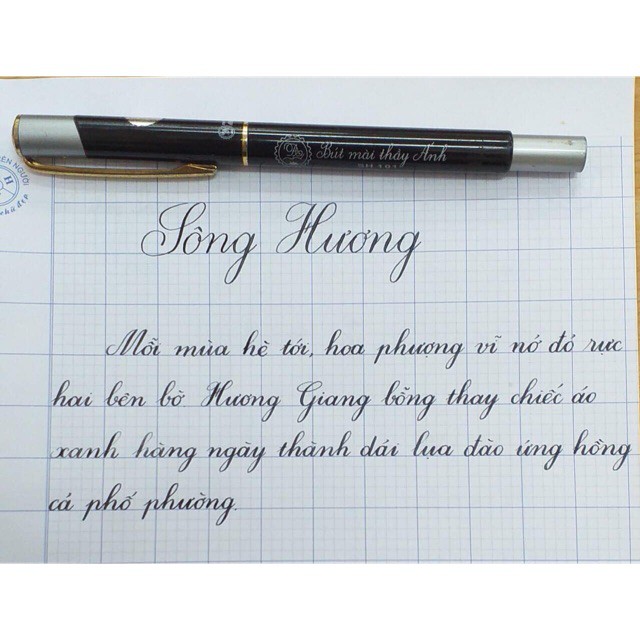 Bút mài thầy Ánh
SH 191
Sông Hương
Mỗi mùa hè tới, hoa phượng vĩ nở đỏ rực
hai bên bờ. Hương Giang bỗng thay chiếc áo
xanh hàng ngày thành dải lụa đào ửng hồng
cả phố phường.